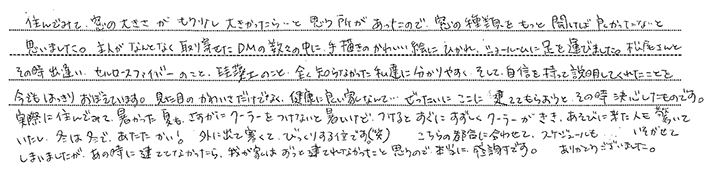 住んでみて、窓の大きさが もう少し大きかったら…と思う所があったので、窓の種類をもっと聞けば良かったな…と
思いました。主人がなんとなく取り寄せたDMの数々の中に、手描きのかわいい絵にひかれ、ショールームに足を運びました。松尾さんと
その時出逢い、セルロースファイバーのこと、珪藻土のこと、全く知らなかった私達に分かりやすく、そして、自信を持って説明してくれたことを
今でもはっきりおぼえています。見た目のかわいさだけでなく、健康に良い家なんて…ぜったいに ここに 建ててもらおうと、その時決心したものです。
実際に住んでみて、暑かった夏も、さすがにクーラーをつけないと暑いけど、つけるとすぐにすずしくクーラーがきき、あそびに来た人も驚いて
いたし、冬は冬で、あたたかい。外に出て寒くて、びっくりする位です。(笑) こちらの都合に合わせて、スケジュールも… いそがせて
しまいましたが、あの時に建ててなかったら、我が家はずっと建てれなかったと思うので、本当に、感謝です。 ありがとうございました。